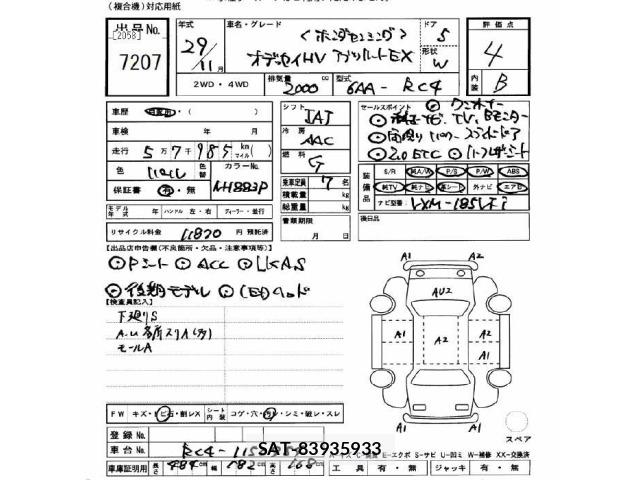 (複合機)対応用紙
出品No.
[2058]
7207
年式
29/11月
車名・グレード
<ホンダセンシング>
オデッセイHV アブソルートEX
ドア
5
形状
W
評価点
4
内装
B
2WD・4WD
排気量
2000
cc
型式
6AA - RC4
車歴
車検
年 月
走行
5万7千985
km
マイル
色
色替
カラーNo.
NH883P
保証書
有・無
モデル年式
年 ハンドル 左・右 ディーラー・並行
リサイクル料金
11870
円 預託済
シフト
IAT
冷房
AAC
燃料
G
乗車定員
7
名
積載量
kg
総重量
kg
書類期限
月 日
セールスポイント
◎ ワンオーナー
◎ 純正ナビ、TV、Bモニター
◎ 2.0 ETC ◎ ハーフレザーシート
装備品
S/R
純A/W
P/S
P/W
ABS
純TV
純ナビ
革シート
外ナビ
エアB
ナビ型番
VXM-185VFi
後日品
【出品店申告欄(不良箇所・欠品・注意事項等)】
◎ Pシート ◎ ACC ◎ LKAS
◎ 後期モデル ◎ LEDヘッド
【検査員記入】
下廻りS
A.U 各所スリA(多)
モールA
A1
A2
A1
AU2
A1
A2
A2
A1
A1
A1
A1
スペア
FW
キズ・トビ石・割レX
シート内装
コゲ・穴・切レ・シミ・破レ・スレ
登録No.
車台No.
RC4-115
SAT-83935933
A-キズ
E-エクボ S-サビ U-凹ミ W-補修 XX-交換済
車庫証明用
長さ
484
cm
幅
182
cm
高さ
168
cm
工具 有・無
ジャッキ 有・無